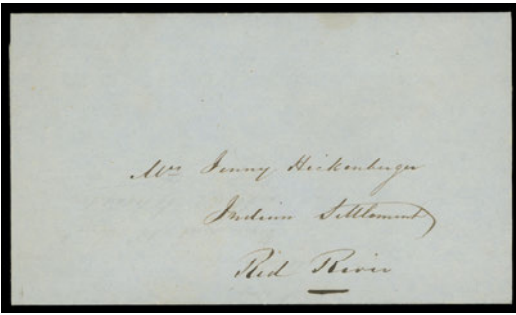 Mrs Jenny Hickenberger
Indian Settlement
Red River